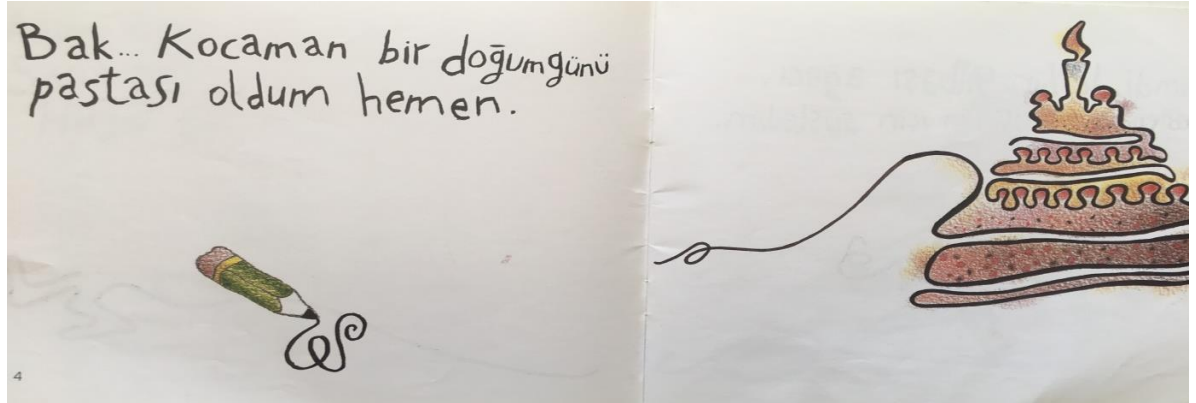 Bak... Kocaman bir doğumgünü
pastası oldum hemen.
4